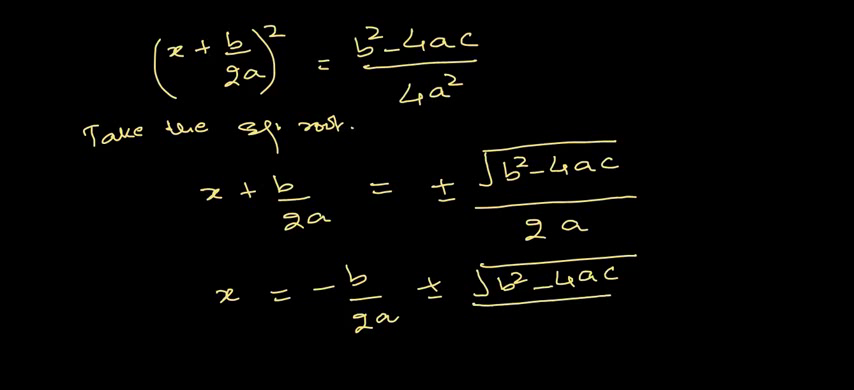 (x + b/2a)² = b² - 4ac/4a²
Take the sq. root.
x + b/2a = ± √b² - 4ac/2a
x = - b/2a ± √b² - 4ac